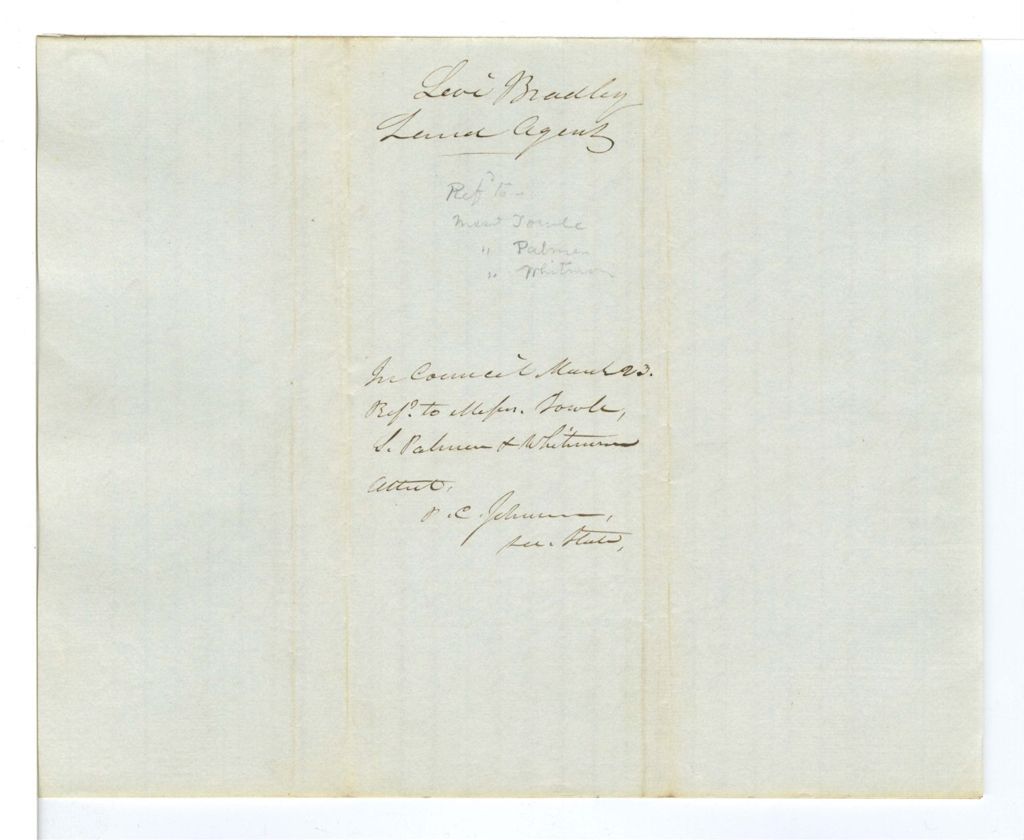 Levi Bradley
Land Agent
Refd to -
Messrs Towle
" Palmer
" Whitmore
In Council March 23.
Refd. to Messrs. Towle,
S. Palmer & Whitmore
Attest.
P. C. Johnson,
Sec. State,